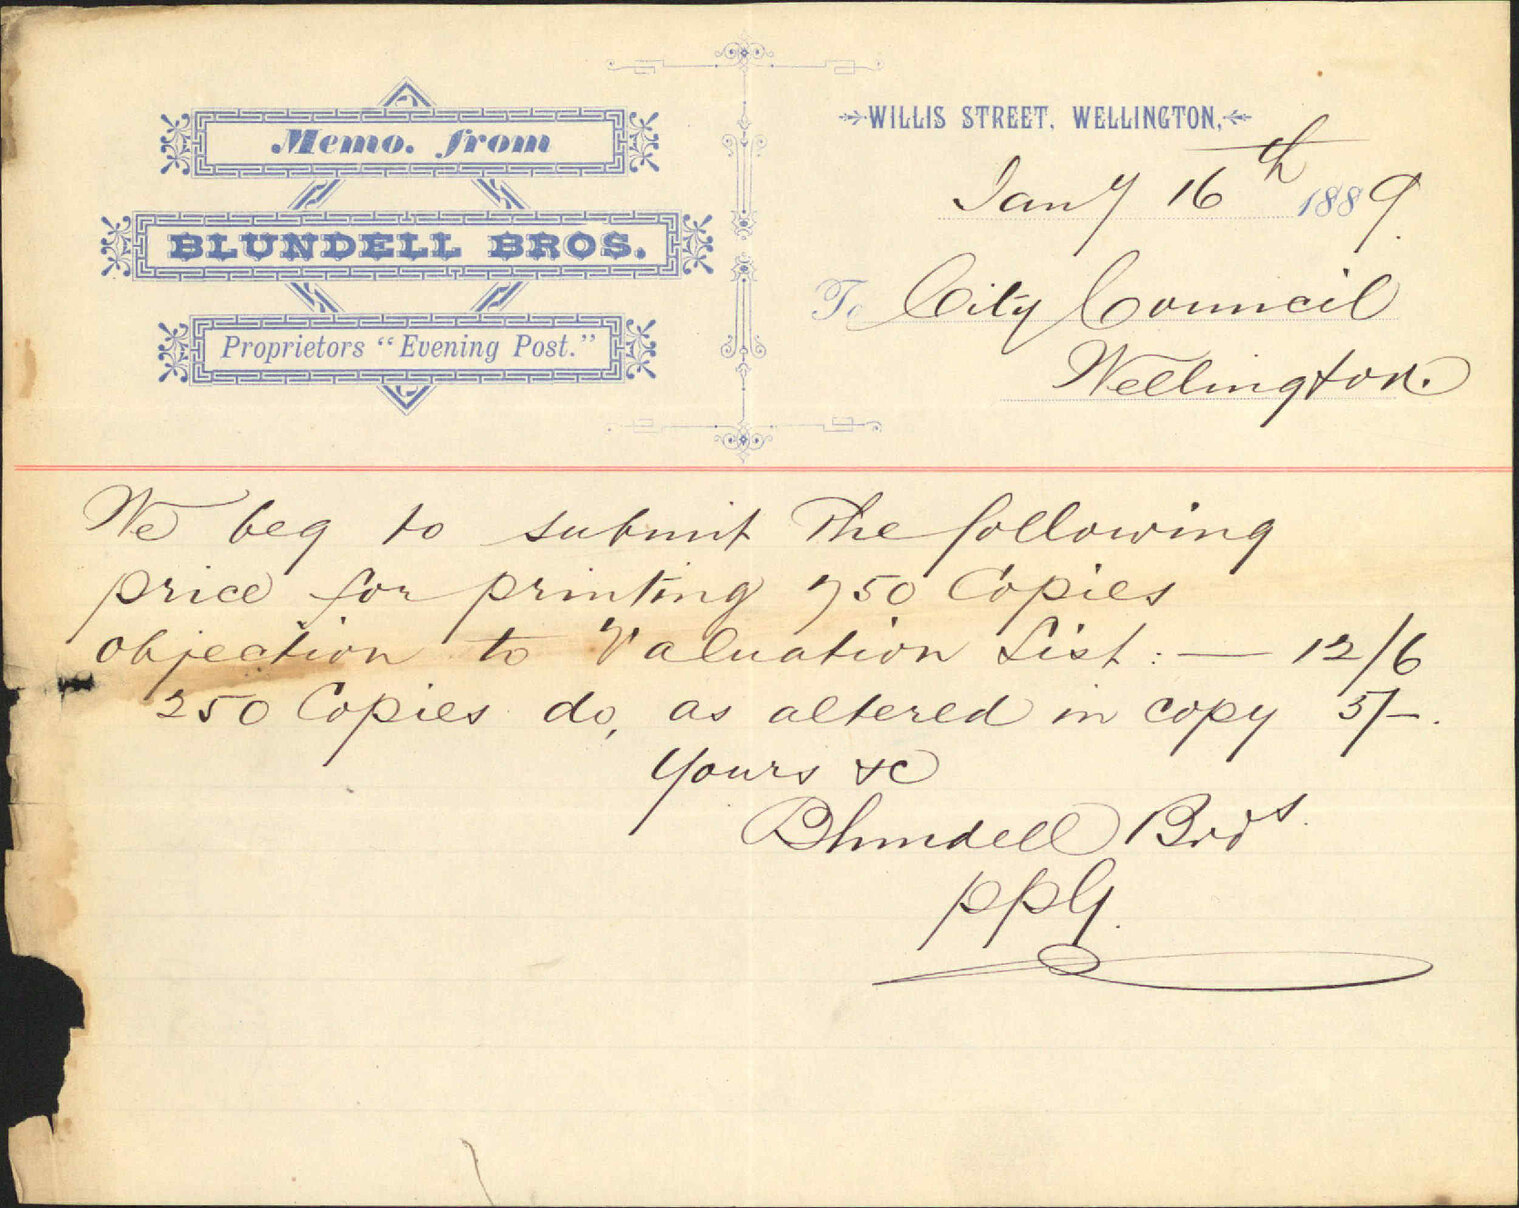 Memo. from
BLUNDELL BROS.
Proprietors "Evening Post."
WILLIS STREET, WELLINGTON,
Jany 16th 1889.
To City Council
Wellington.
We beg to submit the following
price for printing 750 Copies
objection to Valuation List: — 12/6
250 Copies do, as altered in copy 5/-.
Yours &c
Blundell Bros.
ppG.